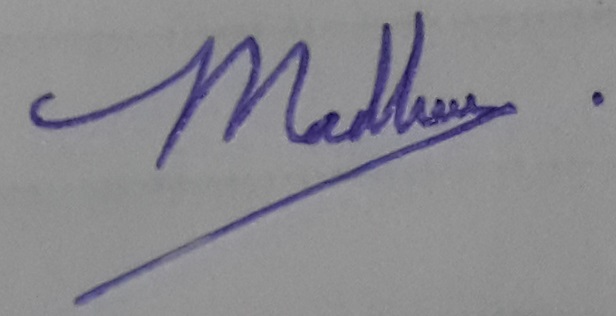 Madhu .